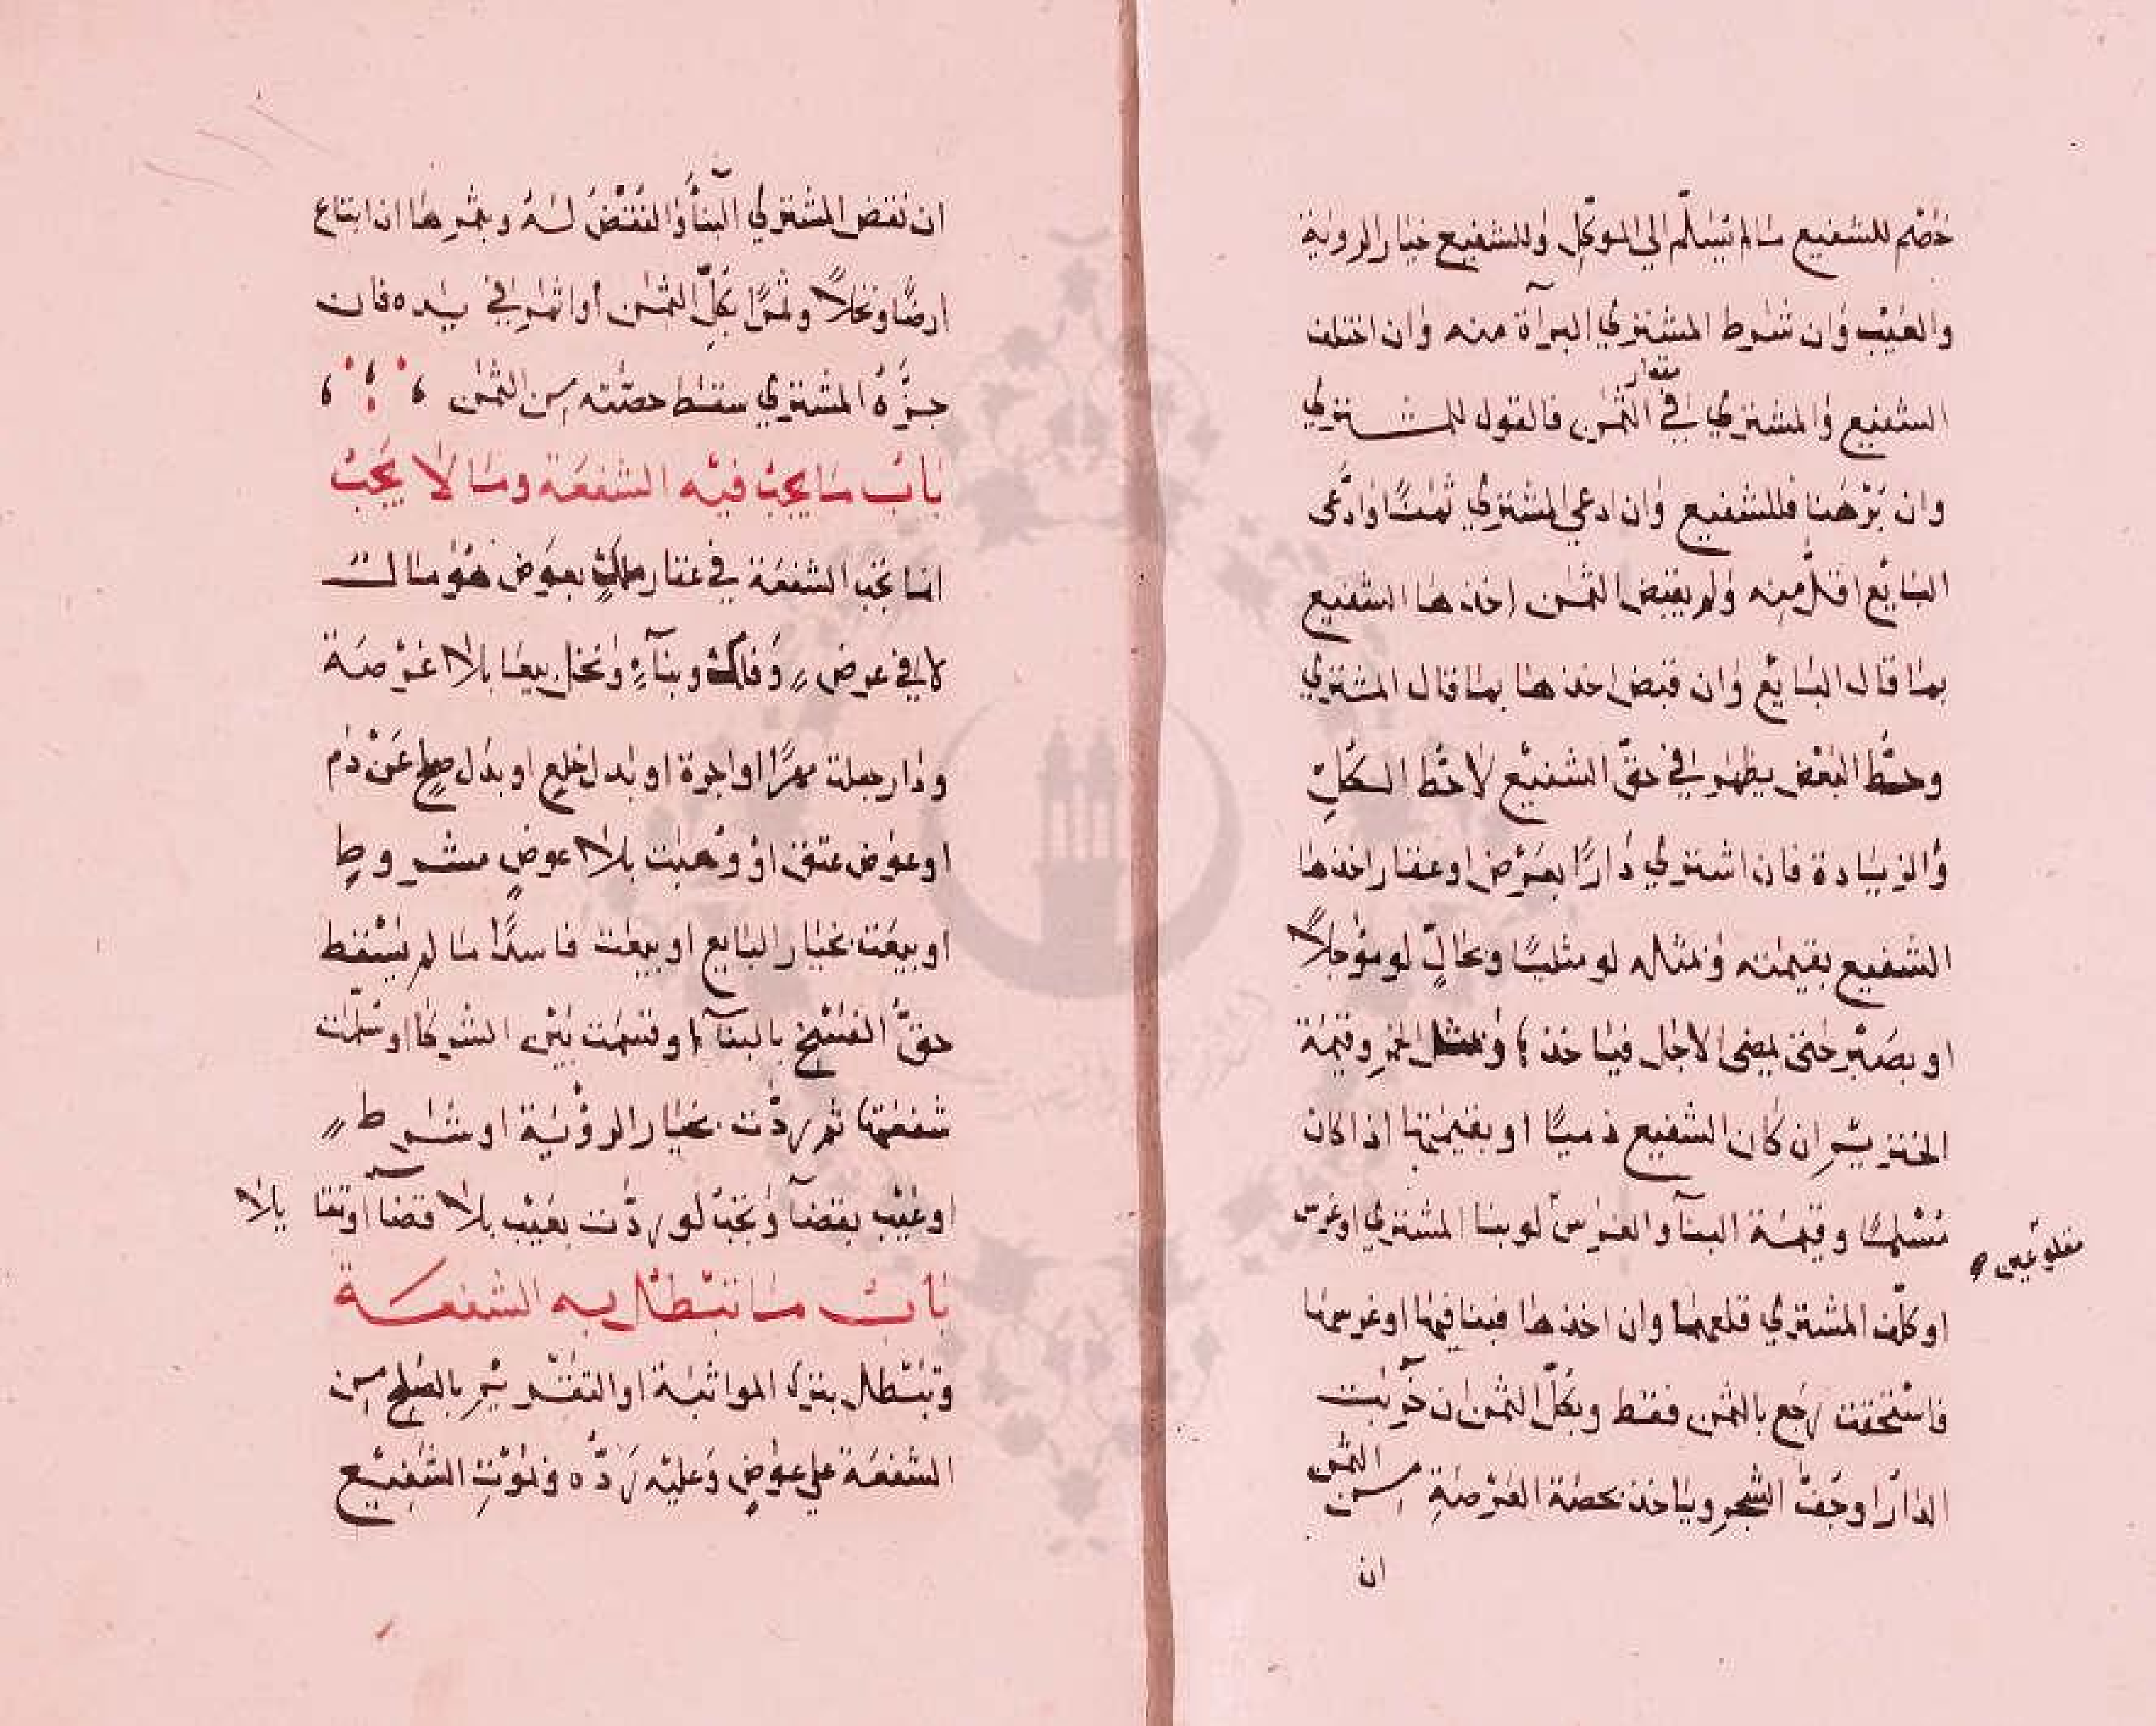 خصم للشفيع مالم يسلم الي الموكل وللشفيع خيار الروية
والعيب وان شرط المشتري البرآة منه وان اختلف
الشفيع والمشتري في مقدار الثمن فالقول للمشتري
وان برهنا فللشفيع وان ادعي المشتري ثمنا وادعى
البايع اقل منه ولم يقبض الثمن اخذها الشفيع
بما قال البايع وان قبض اخذها بما قال المشتري
وحط البعض يظهر في حق الشفيع لاحط الكل
والزيادة فان اشتري دارا بعرض او عقار اخذها
الشفيع بقيمته وبمثله لو مثليا وبحال لو مؤجلا
او بصبر حتى يمضى الاجل فياخذ وبمثل الخمر وقيمة
الخنزير ان كان الشفيع ذميا او بقيمتها اذا كان
مسلما وقيمة البنآ والغرس لو بنا المشتري او غرس
مقلوعين
او كلف المشتري قلعهما وان اخذها فبنا فيها او غرسها
فاستحقت رجع بالثمن فقط وبكل الثمن ان خربت
الدار او جف الشجر وياخذ بحصة العرصة من الثمن
ان
ان نقض المشتري البنآ والنقض له وبثمرها ان ابتاع
ارضا ونخلا وثمرا بكل الثمن او اثمر في يده فان
جزه المشتري سقط حصته من الثمن
باب ما يجب فيه الشفعة وما لا يجب
انما تجب الشفعة في عقار ملك بعوض هو مال
لا في عرض وفلك وبنآء ونخل بيعا بلا عرصة
ودار جعلت مهرا او اجرة او بدل خلع او بدل صلح عن دم
او عوض عتق او وهبت بلا عوض مشروط
او بيعت بخيار البايع او بيعت فاسدا ما لم يسقط
حق الفسخ بالبنآء او قسمت بين الشركا او سلمت
شفعتها ثم ردت بخيار الروية او شرط
او عيب بقضآ وتجب لو ردت بعيب بلا قضآ او تقايلا
باب ما تبطل به الشفعة
وتبطل بترك المواثبة او التقرير بالصلح من
الشفعة علي عوض وعليه رده وبموت الشفيع